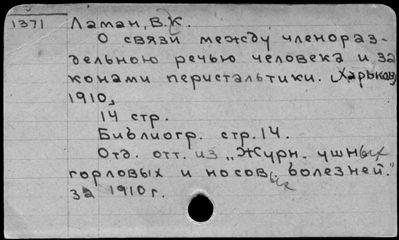 1371 Ламан, В.К.
О связи между членораз-
дельною речью человека и за
конами перистальтики. Харьков,
1910,
14 стр.
Библиогр. стр. 14.
Отд. отт. из „Журн. ушных
горловых и носовых болезней."
за 1910 г.